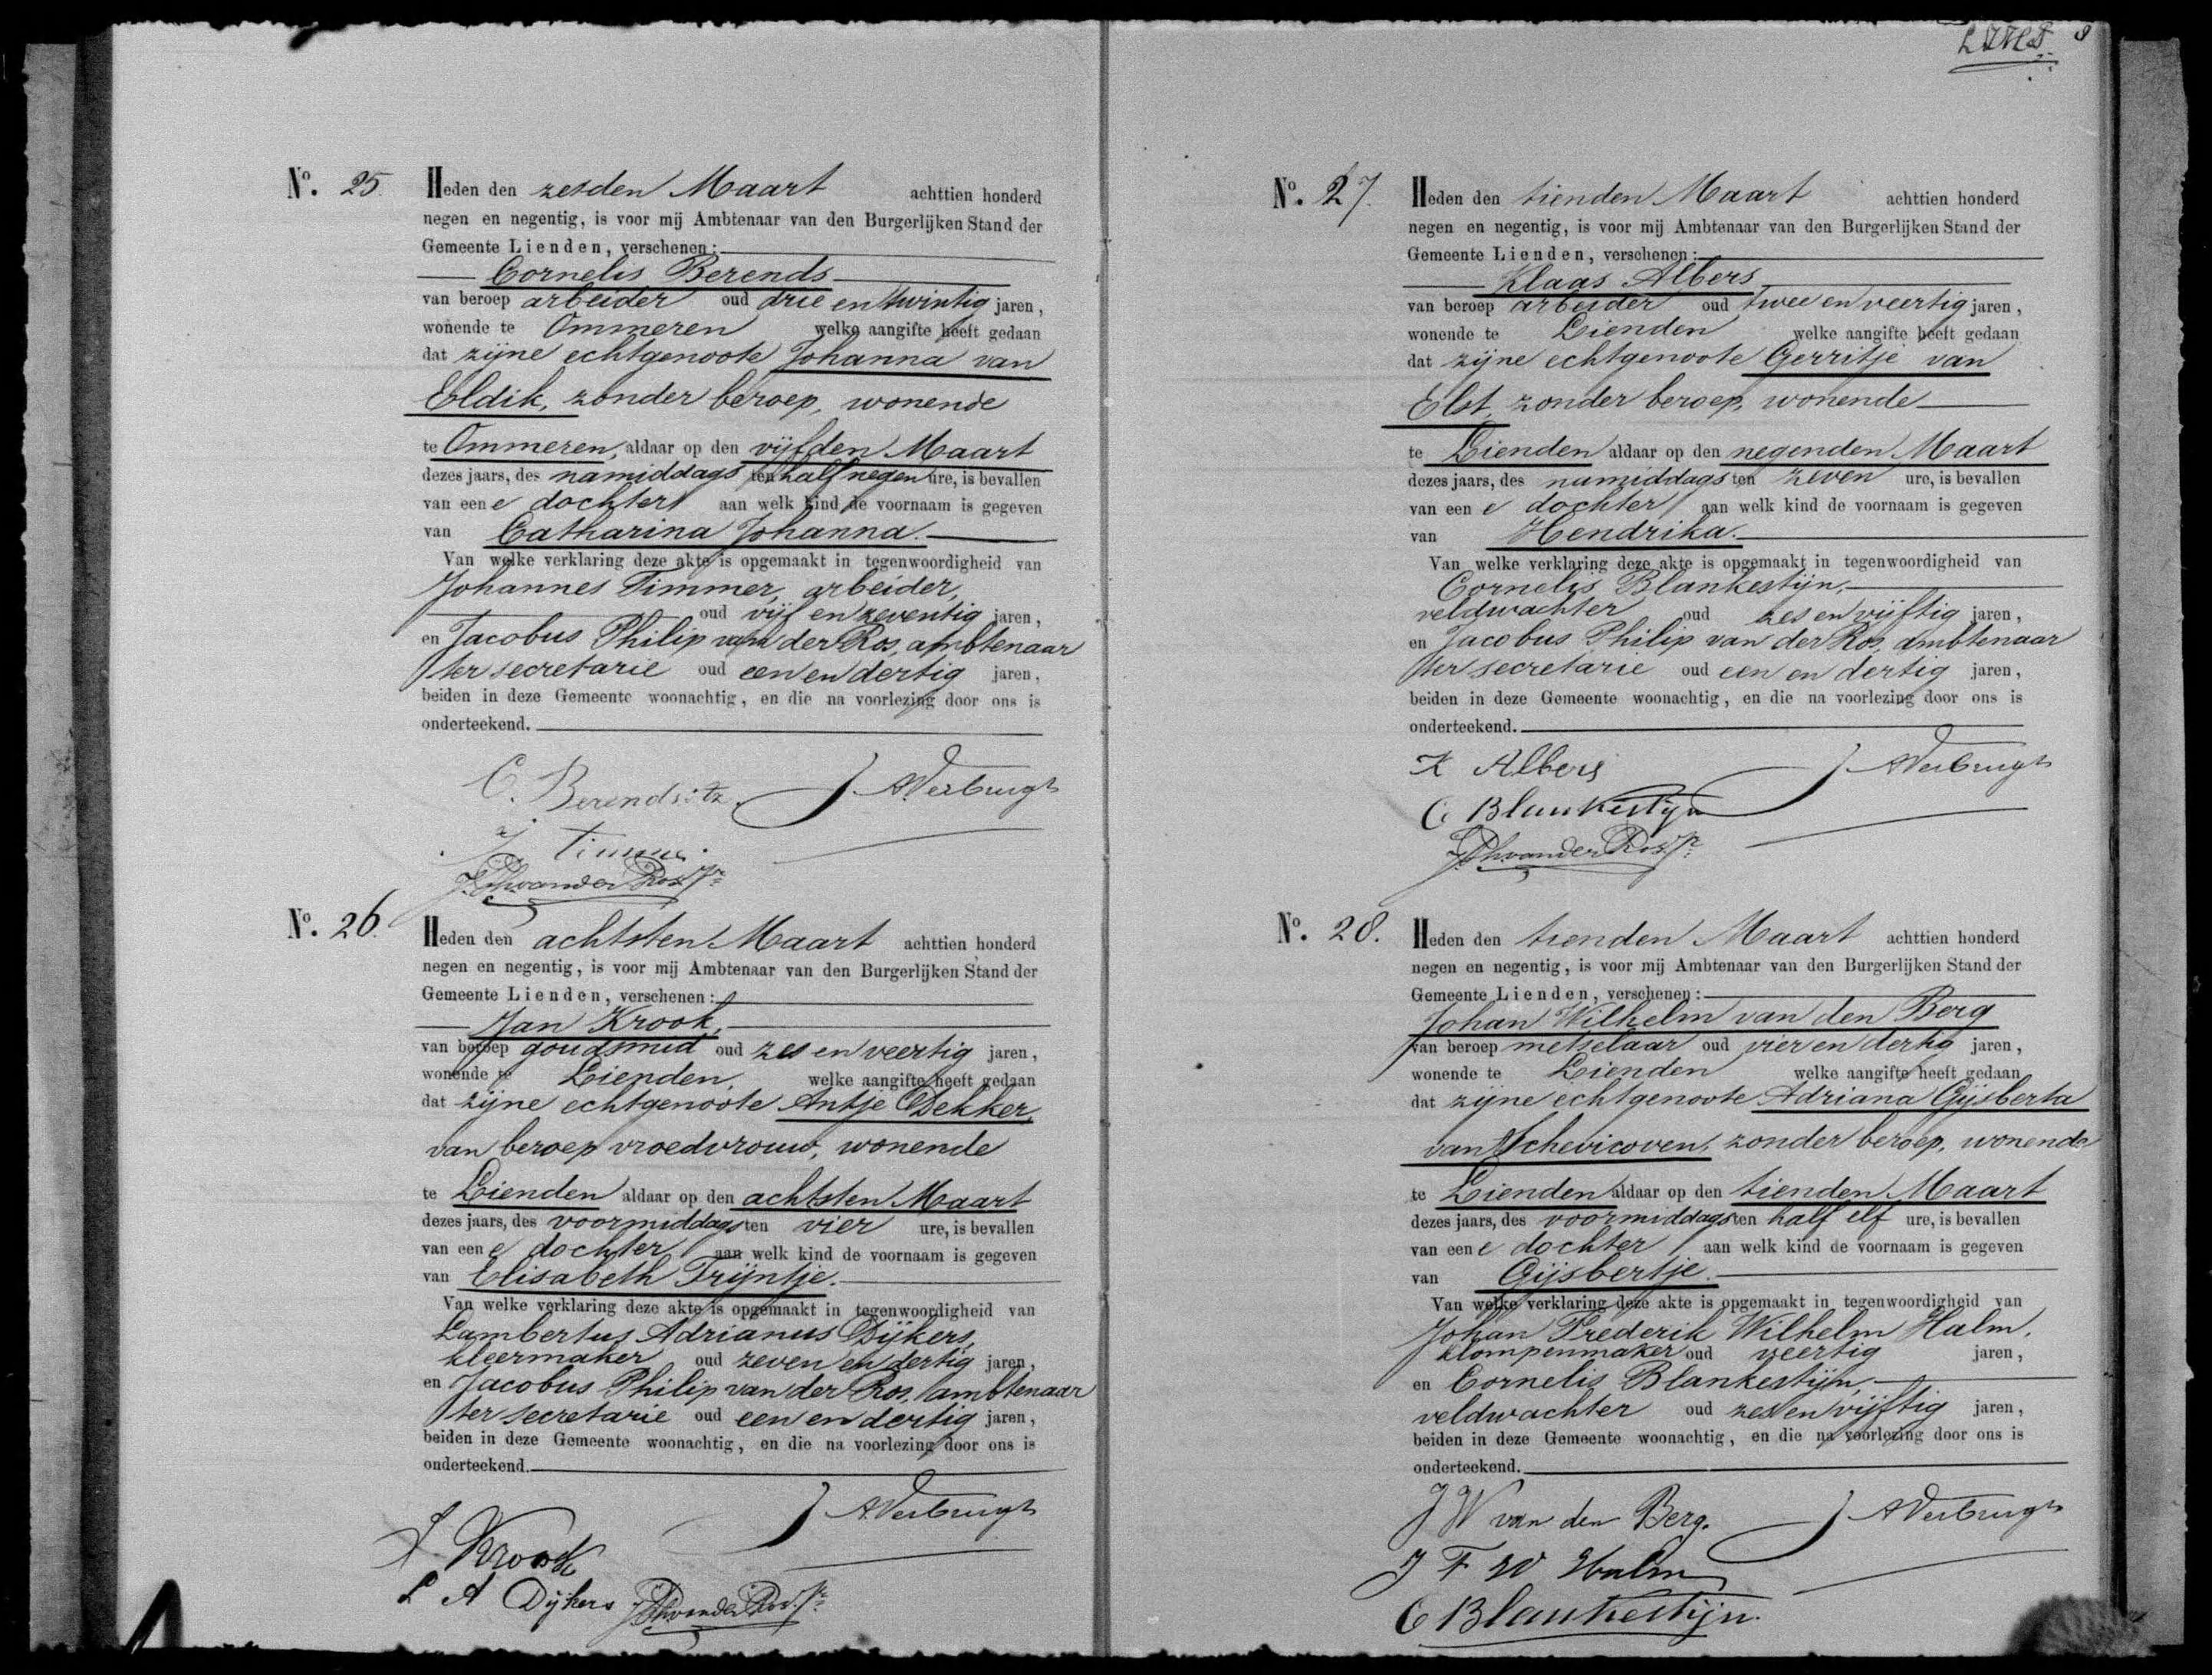 No. 25. Heden den zesden Maart achttien honderd
negen en negentig, is voor mij Ambtenaar van den Burgerlijken Stand der
Gemeente Lienden, verschenen:
Cornelis Berends
van beroep arbeider oud drie en twintig jaren,
wonende te Ommeren welke aangifte heeft gedaan
dat zijne echtgenoote Johanna van
Eldik, zonder beroep, wonende
te Ommeren, aldaar op den vijfden Maart
dezes jaars, des namiddags ten half negen ure, is bevallen
van eene dochter aan welk kind de voornaam is gegeven
van Catharina Johanna.
Van welke verklaring deze akte is opgemaakt in tegenwoordigheid van
Johannes Timmer, arbeider,
oud vijf en zeventig jaren,
en Jacobus Philip van der Ros, ambtenaar
ter secretarie oud een en dertig jaren,
beiden in deze Gemeente woonachtig, en die na voorlezing door ons is
onderteekend.
C. Berends AVerbrugh
J Timmer
JPhvanderRos Jr
No. 26. Heden den achtsten Maart achttien honderd
negen en negentig, is voor mij Ambtenaar van den Burgerlijken Stand der
Gemeente Lienden, verschenen:
Jan Krook,
van beroep goudsmid oud zes en veertig jaren,
wonende te Lienden, welke aangifte heeft gedaan
dat zijne echtgenoote Antje Dekker,
van beroep vroedvrouw, wonende
te Lienden aldaar op den achtsten Maart
dezes jaars, des voormiddags ten vier ure, is bevallen
van eene dochter aan welk kind de voornaam is gegeven
van Elisabeth Trijntje.
Van welke verklaring deze akte is opgemaakt in tegenwoordigheid van
Lambertus Adrianus Dijkers,
kleermaker oud zeven en dertig jaren,
en Jacobus Philip van der Ros, ambtenaar
ter secretarie oud een en dertig jaren,
beiden in deze Gemeente woonachtig, en die na voorlezing door ons is
onderteekend.
AVerbrugh
J. Krook
L A Dijkers JPhvanderRos. Jr
No. 27. Heden den tienden Maart achttien honderd
negen en negentig, is voor mij Ambtenaar van den Burgerlijken Stand der
Gemeente Lienden, verschenen:
Klaas Albers
van beroep arbeider oud twee en veertig jaren,
wonende te Lienden welke aangifte heeft gedaan
dat zijne echtgenoote Gerritje van
Elst, zonder beroep, wonende
te Lienden aldaar op den negenden Maart
dezes jaars, des namiddags ten zeven ure, is bevallen
van eene dochter aan welk kind de voornaam is gegeven
van Hendrika.
Van welke verklaring deze akte is opgemaakt in tegenwoordigheid van
Cornelis Blankestijn,
veldwachter oud zes en vijftig jaren,
en Jacobus Philip van der Ros, ambtenaar
ter secretarie oud een en dertig jaren,
beiden in deze Gemeente woonachtig, en die na voorlezing door ons is
onderteekend.
K Albers AVerbrugh
C Blankestijn
JPhvanderRos. Jr
No. 28. Heden den tienden Maart achttien honderd
negen en negentig, is voor mij Ambtenaar van den Burgerlijken Stand der
Gemeente Lienden, verschenen:
Johan Wilhelm van den Berg
van beroep metselaar oud vier en dertig jaren,
wonende te Lienden welke aangifte heeft gedaan
dat zijne echtgenoote Adriana Gijsberta
van Schevicoven, zonder beroep, wonende
te Lienden aldaar op den tienden Maart
dezes jaars, des voormiddags ten half elf ure, is bevallen
van eene dochter aan welk kind de voornaam is gegeven
van Gijsbertje.
Van welke verklaring deze akte is opgemaakt in tegenwoordigheid van
Johan Frederik Wilhelm Halm,
klompenmaker oud veertig jaren,
en Cornelis Blankestijn,
veldwachter oud zes en vijftig jaren,
beiden in deze Gemeente woonachtig, en die na voorlezing door ons is
onderteekend.
J W van den Berg. AVerbrugh
J F W Halm
C Blankestijn.